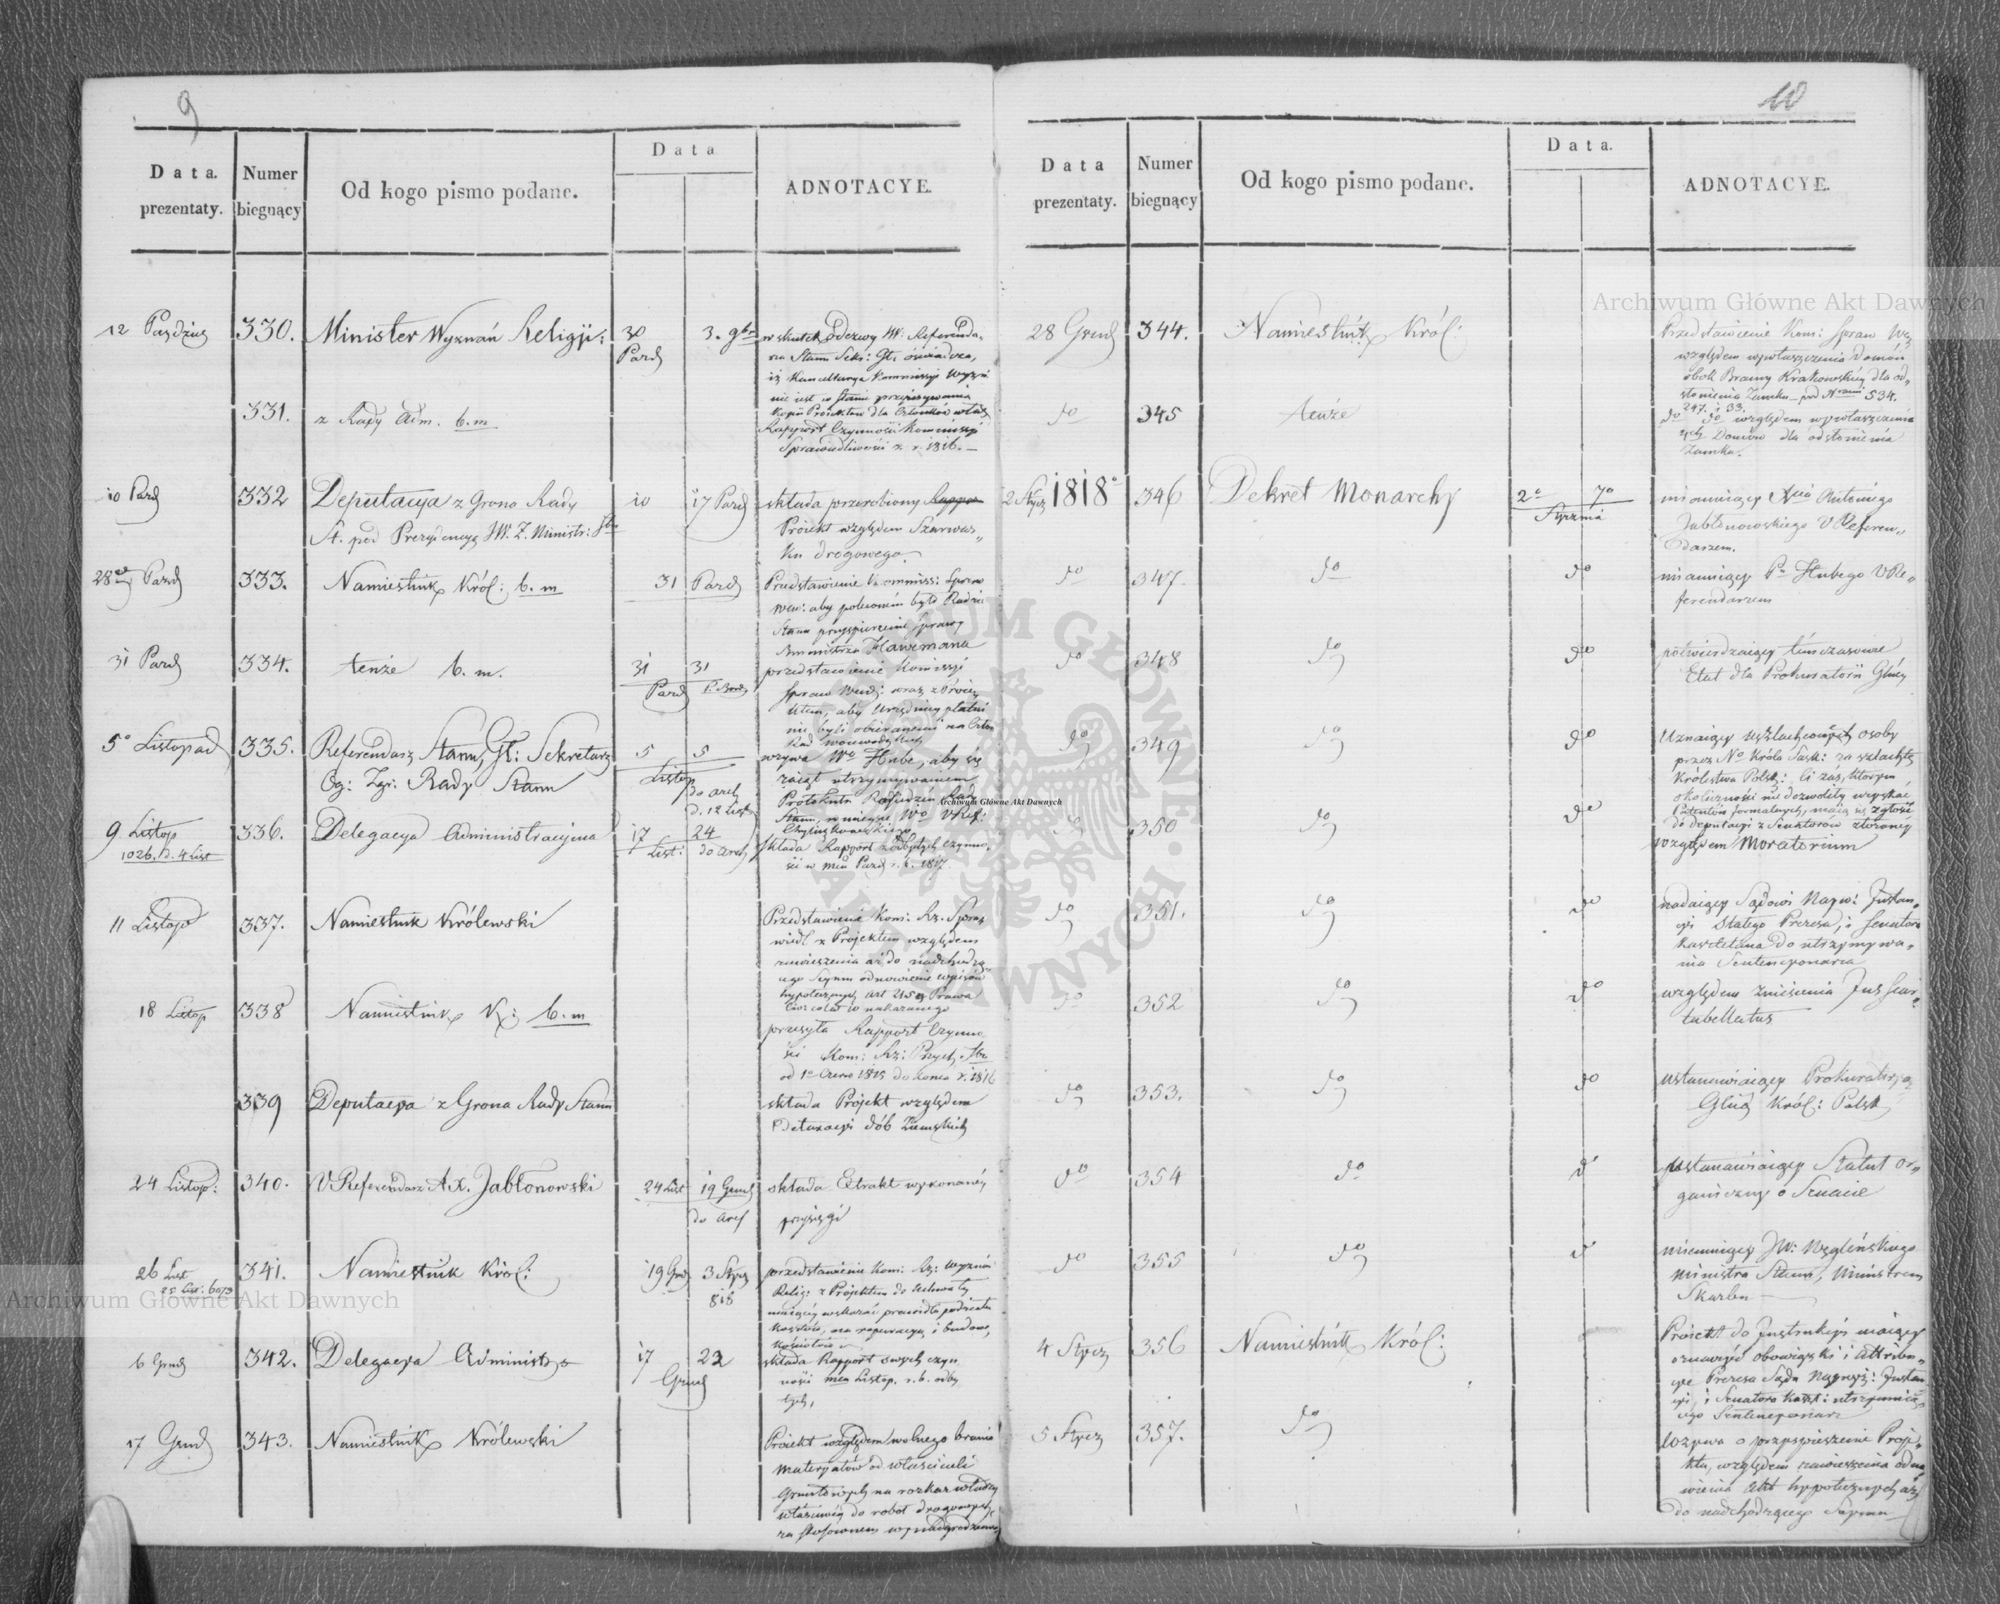 9
Data. prezentaty.
Numer biegnący
Od kogo pismo podane.
Data
ADNOTACYE.
12 Paździer 330. Minister Wyznań Religji: 30 Pazd 3. 9br
w skutek Odezwy JW: Referenda-
rza Stanu Sekr: Gł: oświadcza,
iż Kancellarya Kommissyi Wyzn
nie iest w stanie przepisywania
Kopii Proiektów dla Członków
331. z Rady Adm. b. m
Rapport Czynności Kommissyi
Sprawiedliwości z r. 1816.
10 Pazd 332 Deputacya z Grona Rady 10 17 Pazd
St. pod Prezydencyą JW. Z. Ministr:
składa przerobiony Rappor
Proiekt względem Szarwar-
ku drogowego
28 Pazd 333. Namiestnik Król: b. m 31 Pazd
Przedstawienie Kommiss: Spraw
Wew: aby poleconém było Radzie
Stanu przyspieszenie Sprawy
31 Pazd 334. tenże b. m. 31 31 Pazd
przedstawienie Komissyi
Spraw Wewn:
utem, aby Urzędnicy płatni
nie byli obieranemi na Człon
Rad Woiewódzkich
5° Listopad 335. Referendarz Stanu, Gł: Sekretarz 5 5 Listop
Og: Zgr: Rady Stanu do arch d. 12 List
wzywa Wo Hube, aby się
zaiął utrzymywaniem
Protokułu Posiedzeń Rady
Stanu, w mieysce Wo VRef:
9 Listop 336. Delegacya Administracyina 17 24 List: do arch
1026. d. 4 List
składa Rapport z odbytych czynno-
ści w mcu Pazd r. b. 1817
11 Listop 337. Namiestnik Królewski
Przedstawienie Kom: Rz. Spraw
wiedl z Proiektem względem
zawieszenia aż do nadchodzą
cego Seymu odnowienie wpisów
hypotecznych art 215 Prawa
18 Listop 338 Namiestnik Kr: b. m
przesyła Rapport Czynno-
ści Kom: Rz: Przych:
od 1° Czerw 1815 do końca r. 1816
339 Deputacya z Grona Rady Stanu
składa Projekt względem
Detaxacyi dób Ziemskich
24 Listop: 340. V Referendarz Ax. Jabłonowski 24 List 19 Grud do arch
składa Extrakt wykonanéy
przysięgi
26 List 341. Namiestnik Król: 19 Grud 3 Stycz 818
25 List: 6073
przedstawienie Kom: Rz: Wyznań
Relig: z Projektem do Uchwały
maiącéy wskazać prawidła podziału
Kosztów, na reperacyą i budowę
Kościołów
6 Grud 342. Delegacya Administr 17 22 Grud
składa Rapport swych czyn
ności mca Listop. r. b. odby
tych,
17 Grud 343. Namiestnik Królewski
Proiekt względem wolnego brania
materyałów od właścicieli
Gruntowych na rozkaz władzy
właściwéy do robót drogowych
za stosownem wynadgrodzeniem
10
Data prezentaty.
Numer biegnący
Od kogo pismo podane.
Data.
ADNOTACYE.
28 Grud 344. Namiestnik Król:
Przedstawienie Kom: Spraw We
względem wywłaszczenia Domów
obok Bramy Krakowskiey dla od-
słonienia Zamku pod Nrami 534.
247. i 33.
do 345 tenże
do do względem wywłaszczenia
Domów dla odsłonienia
Zamku.
2 Stycz 1818° 346 Dekret Monarchy 2° 7° Stycznia
mianuiący Xcia Antoniego
Jabłonowskiego V Referen-
darzem.
do 347. do do
mianuiący Pa Hubego V Re-
ferendarzem
do 348 do do
potwierdzaiący tymczasowie
Etat dla Prokuratorii Główy
do 349 do do
Uznaiący uszlachconych osoby
przez No Króla Sask: za szlachtę
Królestwa Polsk: ci zaś, którym
okoliczności nie dozwoliły uzyskać
Patentów formalnych, maią się zgłosić
do Deputacyi z Senatorów złożonéy
do 350 do do
względem Moratorium
do 351. do do
nadaiący Sądowi Nayw: Instan-
cyi Stałego Prezesa, i Senatora
Kasztelana do utrzymywa-
nia Sentencyonarza
do 352 do do
względem zniesienia Jus
tabellatus
do 353. do do
ustanawiaiący Prokuratoryą
Głłą Król: Polsk
do 354 do do
ustanawiaiący Statut or-
ganiczny o Senacie
do 355 do do
mianuiący JW: Węgleńskiego
Ministra Stanu, Ministrem
Skarbu
4 Stycz 356 Namiestnik Król:
Proiekt do Instrukcyi maiącéy
oznaczyć obowiązki i Attribu-
cye Prezesa Sądu Naywyż: Instan
cyi, i Senatora Kaszt: utrzymuią-
cego Sentencyonarz
5 Stycz 357. do
wzywa o przyspieszenie Proje-
ktu, względem zawieszenia odno
wienia Akt hypotecznych aż
do nadchodzącego Seymu
Archiwum Główne Akt Dawnych
Archiwum Główne Akt Dawnych
Archiwum Główne Akt Dawnych
ARCHIWUM GŁÓWNE AKT DAWNYCH